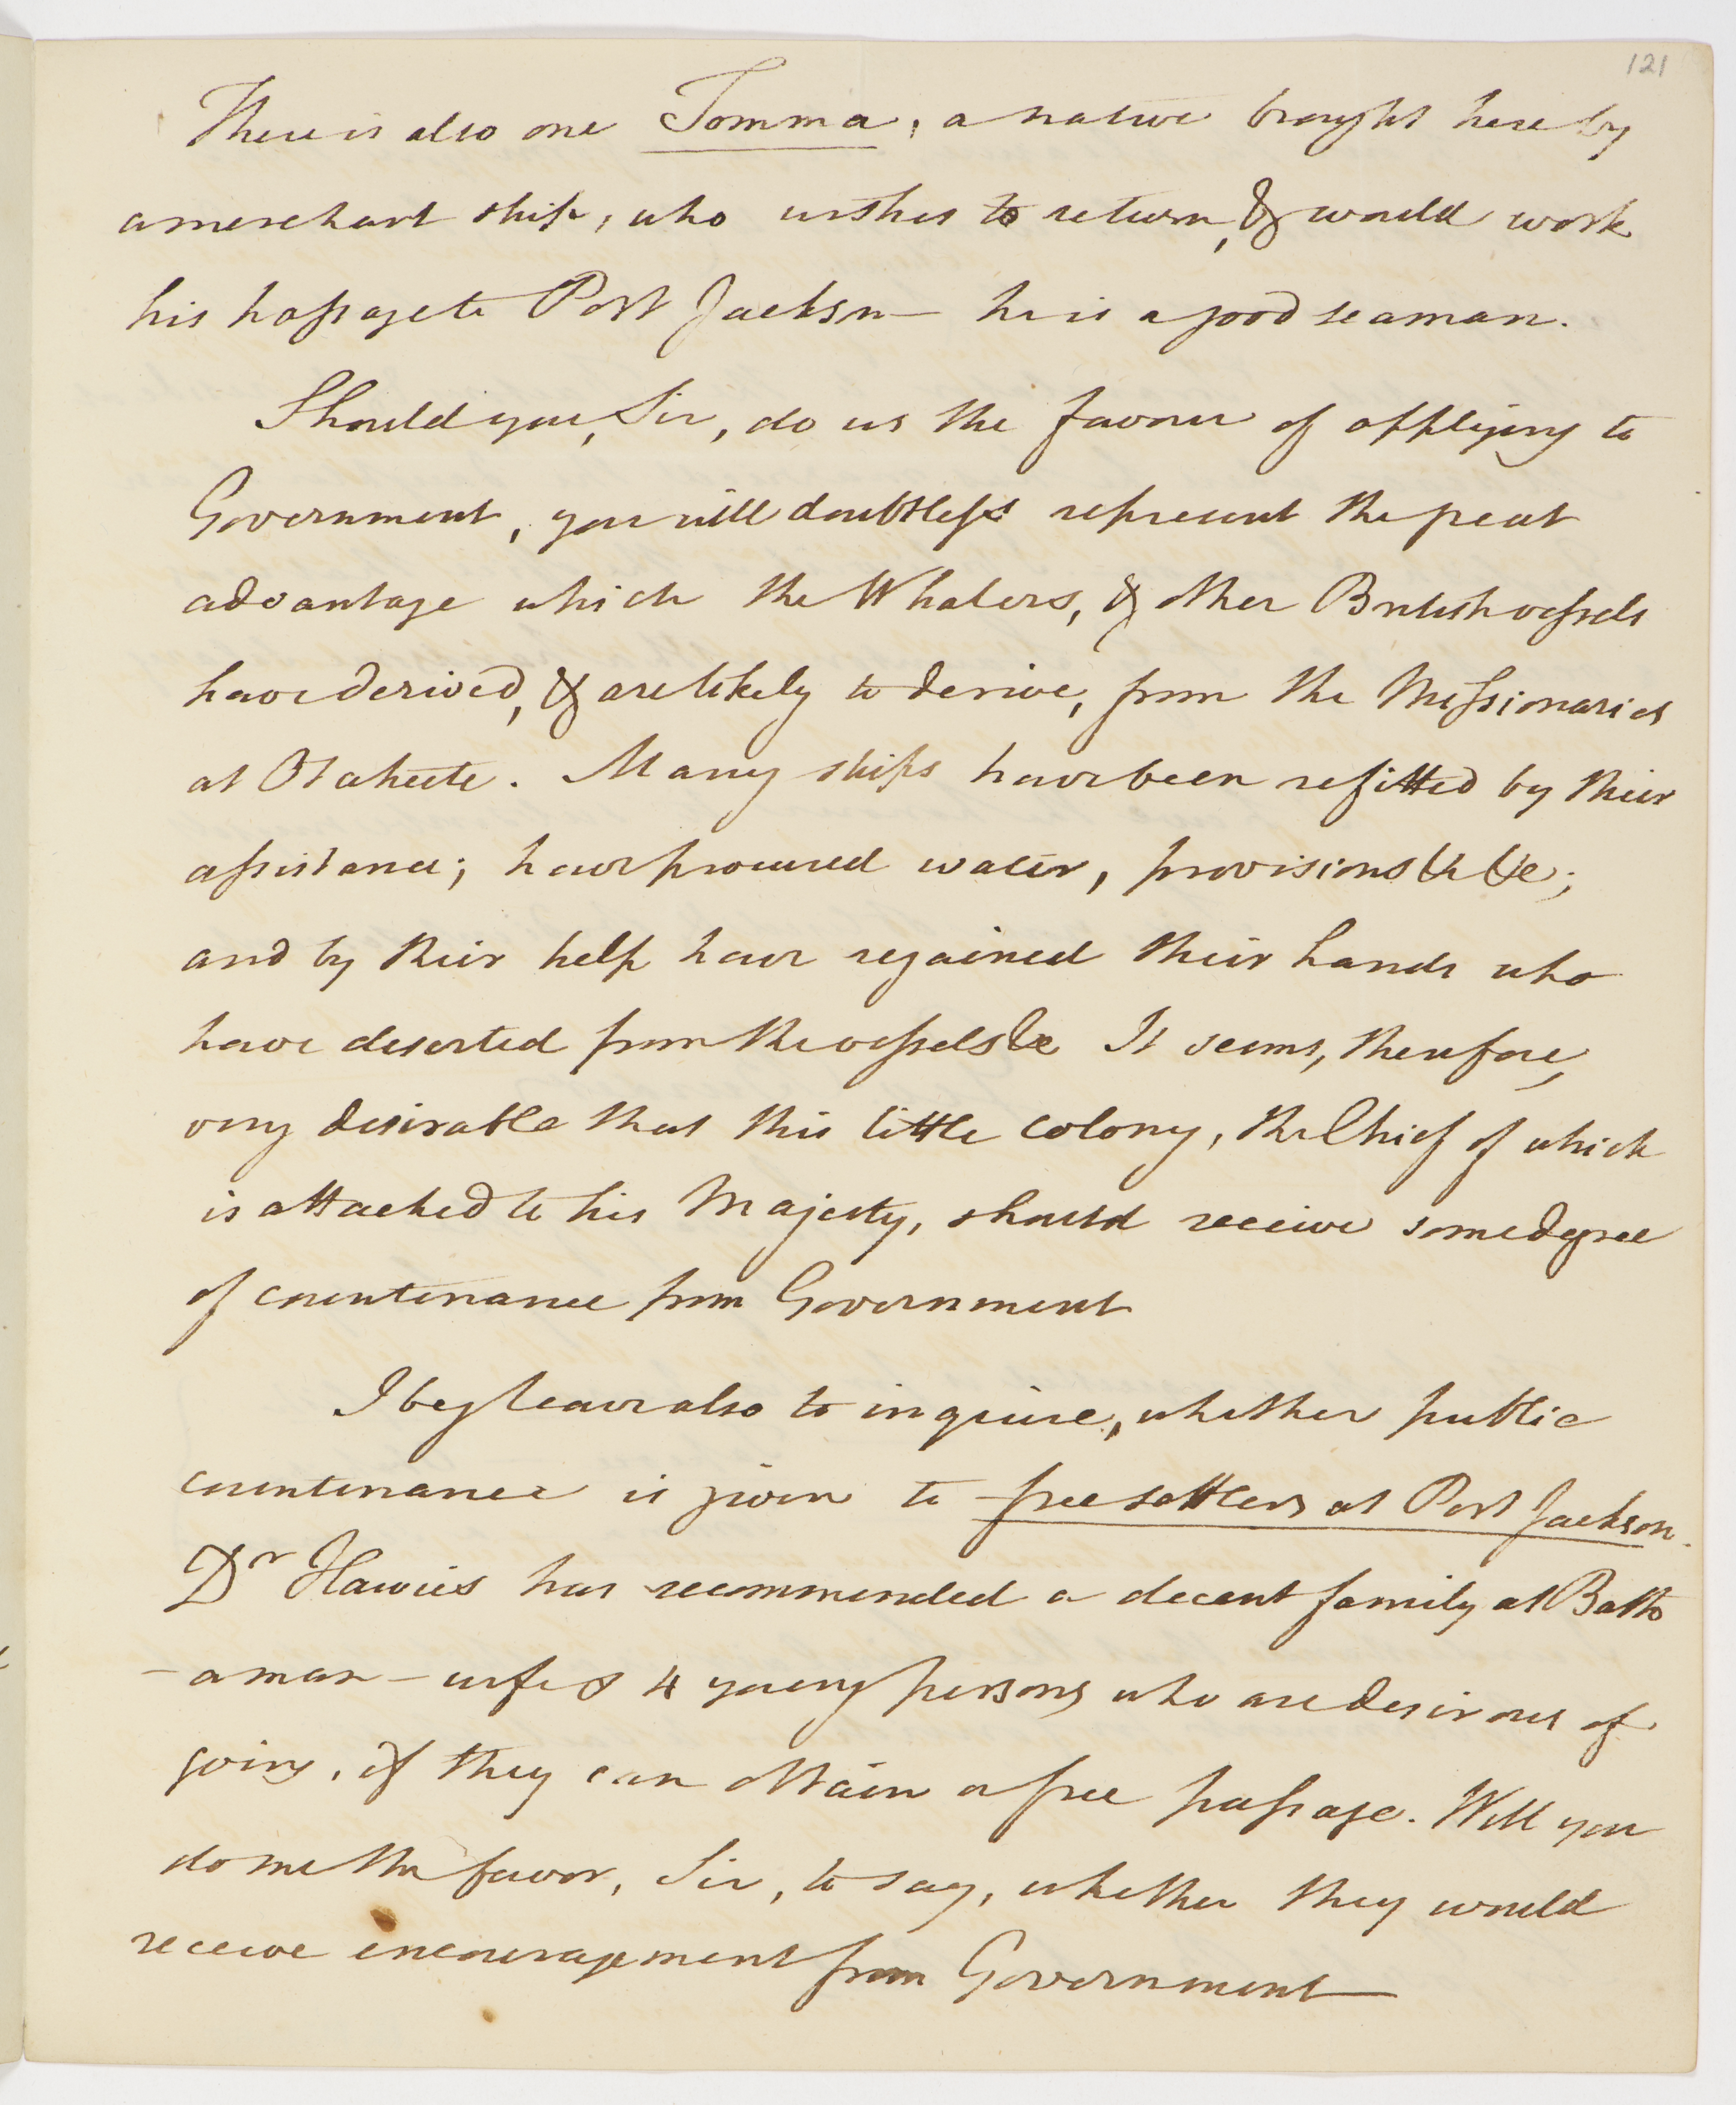 121
There is also one Tomma, a native brought here by
a merchant ship, who wishes to return, & would work
his passage to Port Jackson — he is a good seaman.
Should you, Sir, do us the favour of applying to
Government, you will doubtless represent the great
advantage which the Whalers, & other British vessels
have derived, & are likely to derive, from the Missionaries
at Otaheite. Many ships have been refitted by their
assistance; have procured water, provisions &c &c;
and by their help have regained their hands who
have deserted from the vessels &c It seems, therefore,
very desirable that this little colony, the Chief of which
is attached to his Majesty, should receive some degree
of countenance from Government
I beg leave also to inquire, whether public
countenance is given to free settlers at Port Jackson.
Dr Haweis has recommended a decent family at Bath
— a man — wife & 4 young persons who are desirous of
going, if they can obtain a free passage. Will you
do me the favor, Sir, to say, whether they would
receive encouragement from Government —